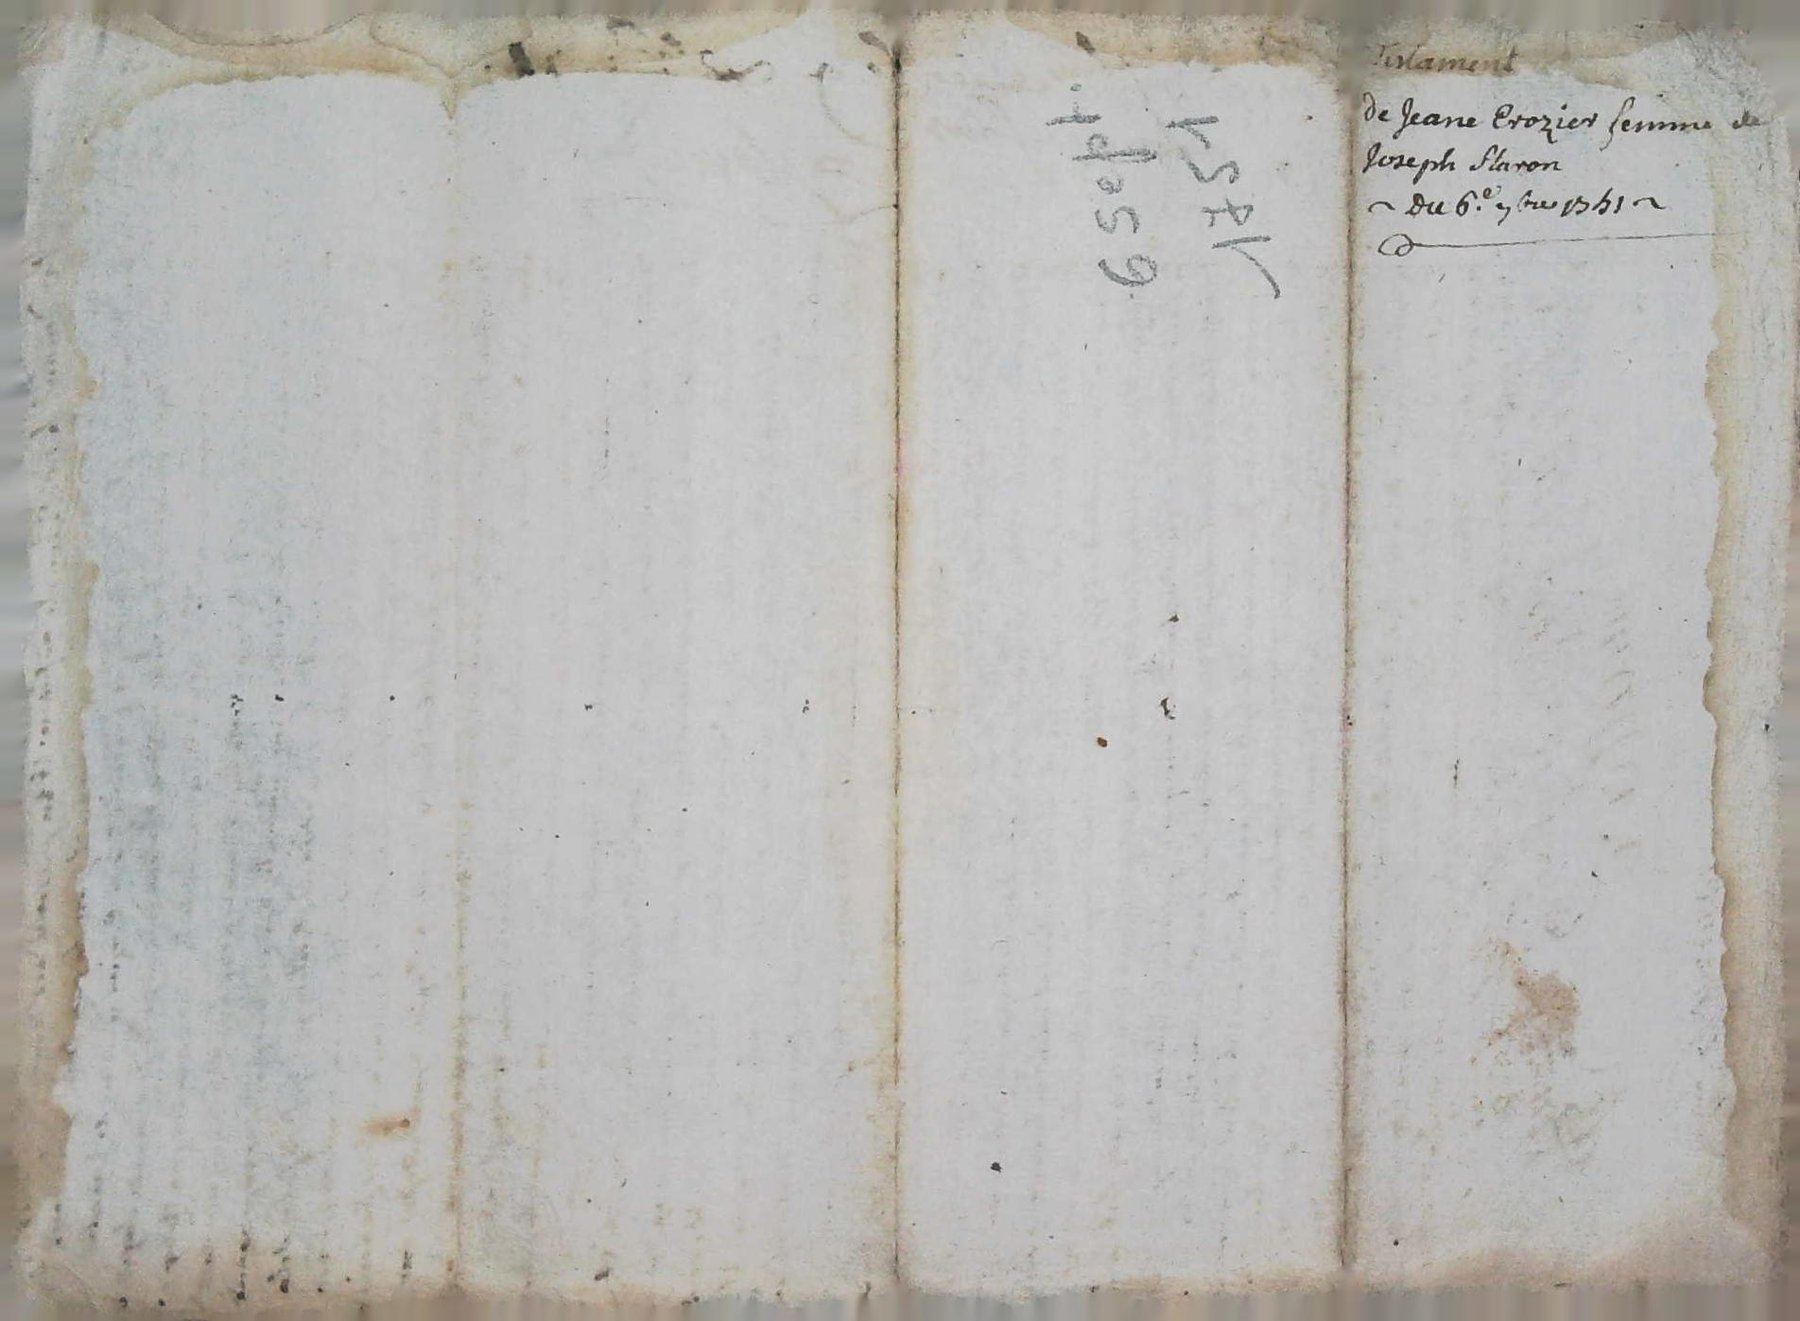 Testament
de Jeane Crozier femme de
Joseph Staron
~ du 6.e 7bre 1751 ~
6 Sept.
1751